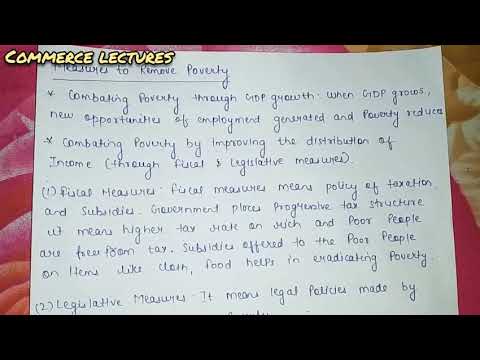 COMMERCE LECTURES
Measures to Remove Poverty
* Combating Poverty through GDP growth: when GDP grows,
new opportunities of employment generated and Poverty reduces
* Combating Poverty by improving the distribution of
Income (through fiscal & legislative measures).
(1) Fiscal Measures: fiscal measures means policy of taxation
and Subsidies. Government places Progressive tax structure
it means higher tax rate on rich and Poor People
are free from tax. Subsidies offered to the Poor People
on Items like cloth, food helps in eradicating Poverty.
(2) Legislative Measures: It means legal Policies made by